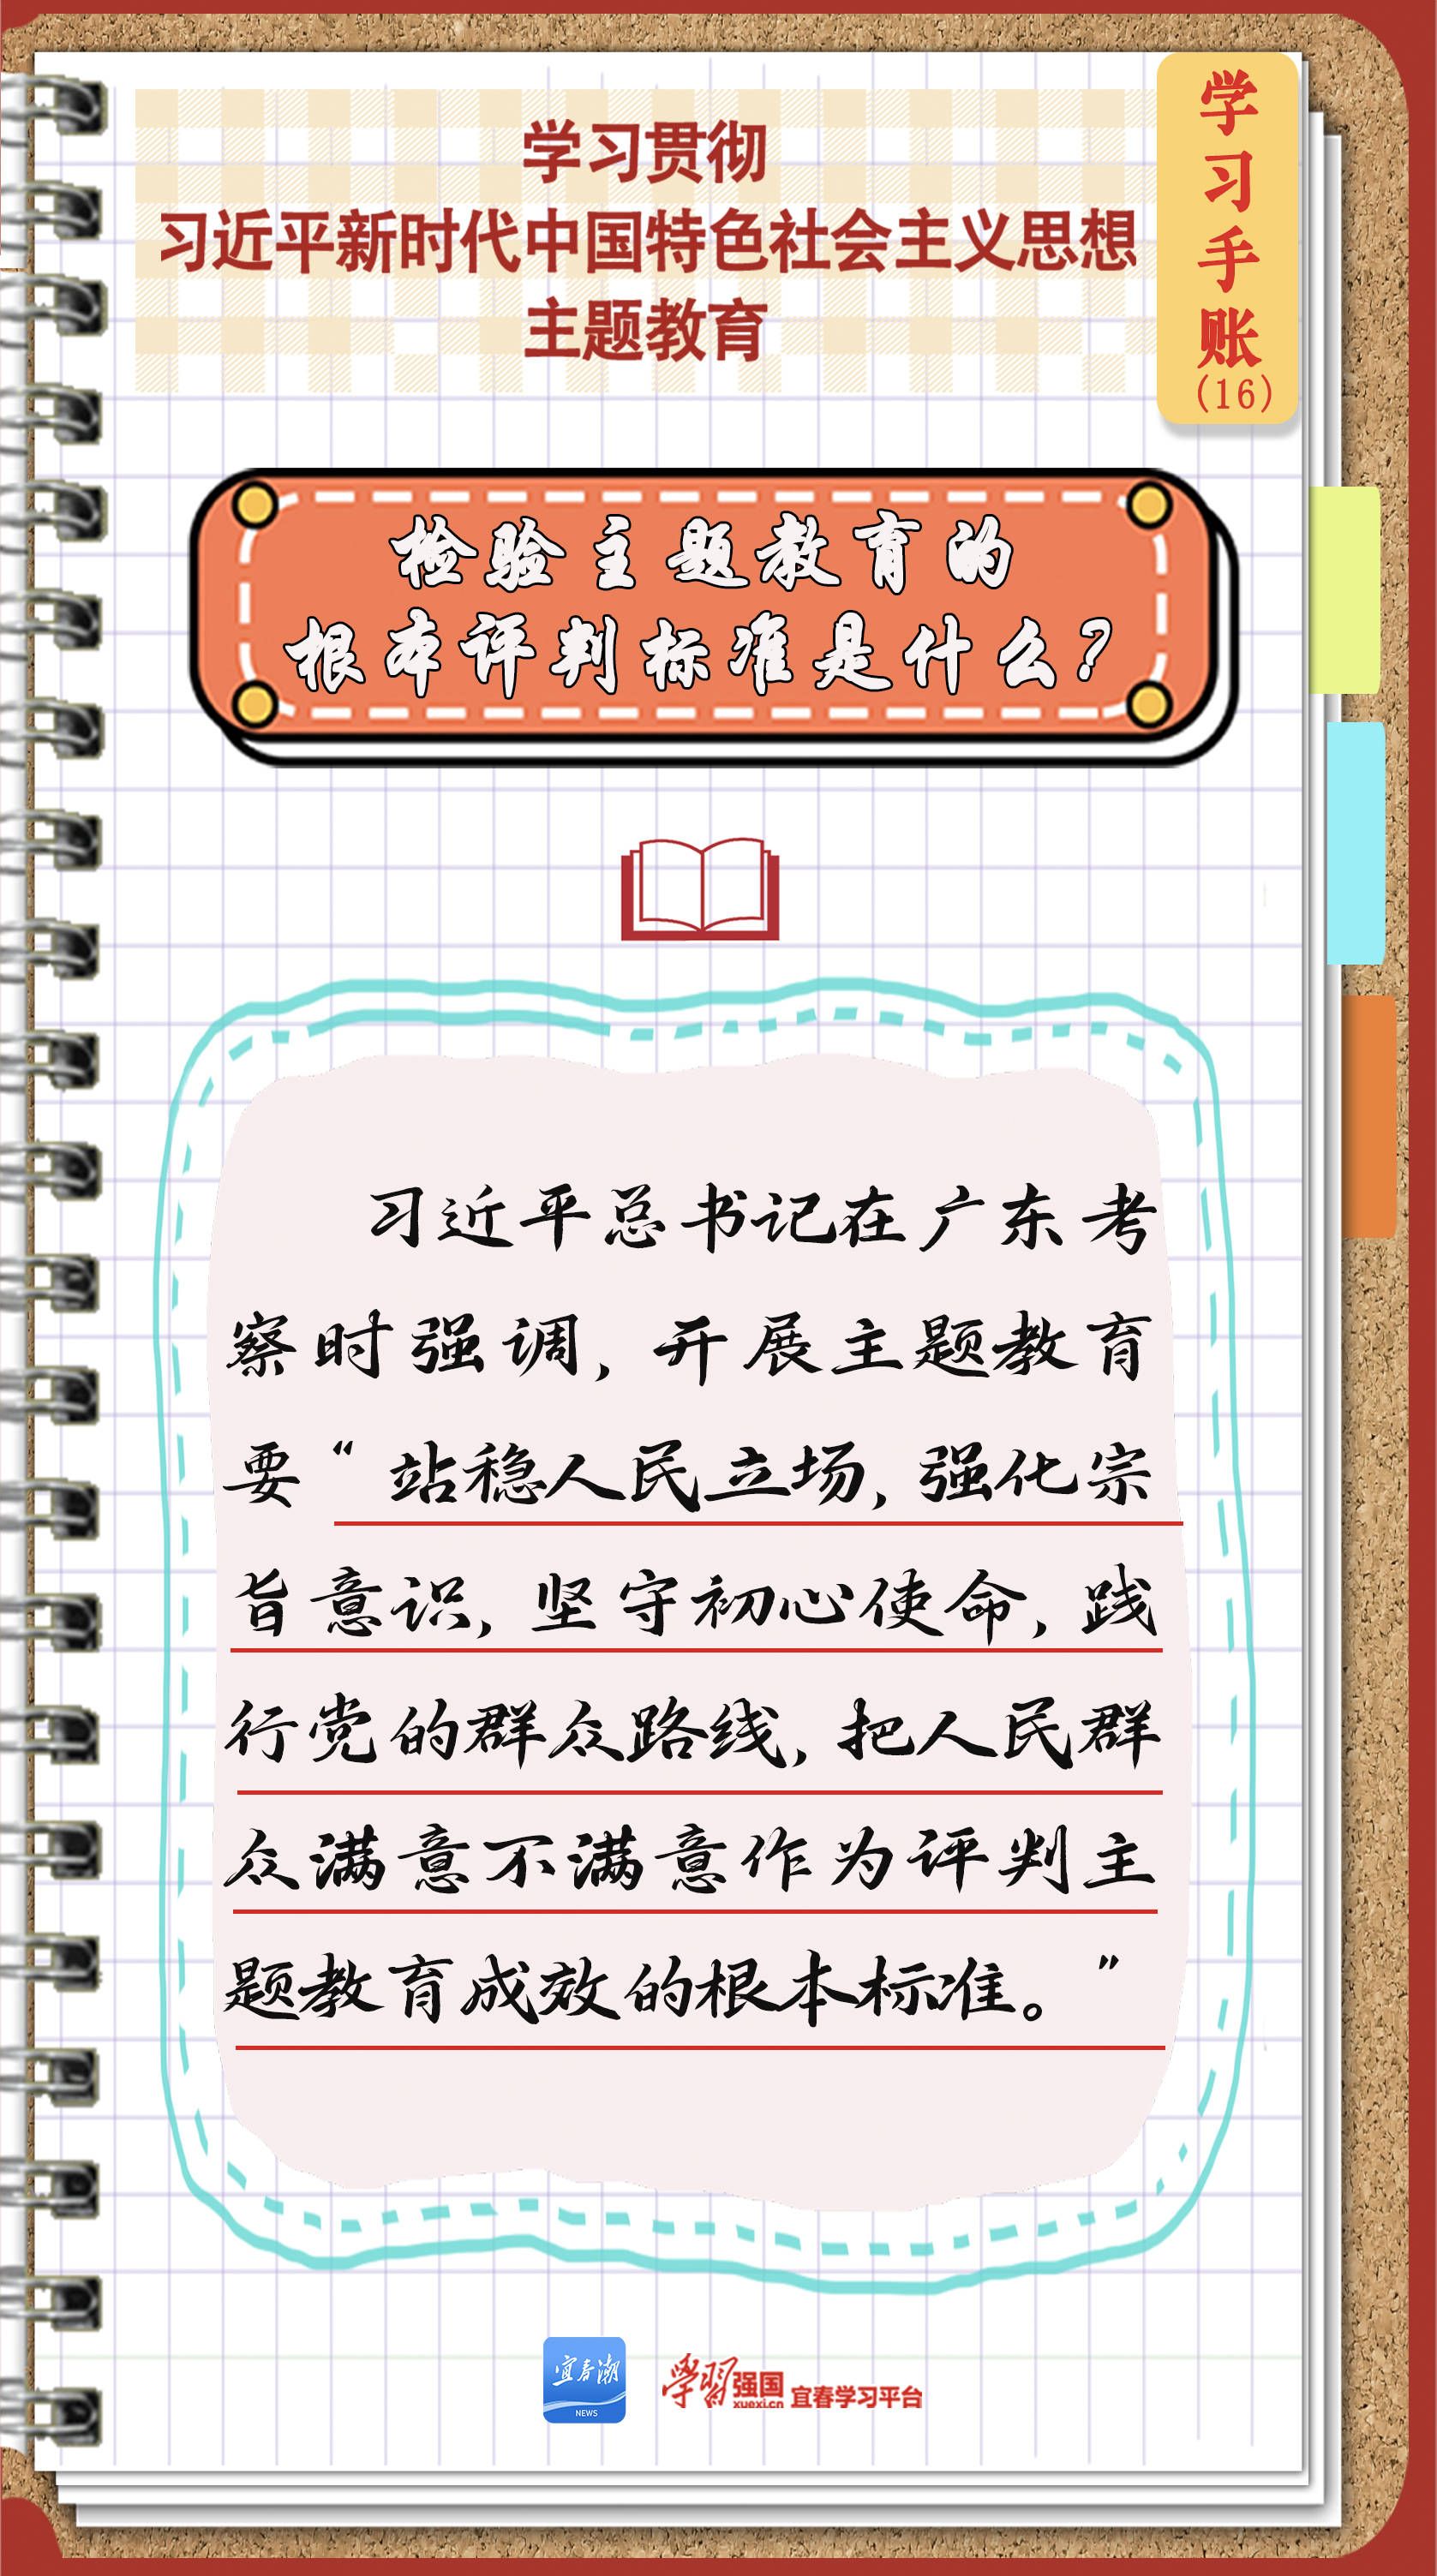 学习贯彻
习近平新时代中国特色社会主义思想
主题教育
学习手账
(16)
检验主题教育的
根本评判标准是什么？
习近平总书记在广东考
察时强调，开展主题教育
要“站稳人民立场，强化宗
旨意识，坚守初心使命，践
行党的群众路线，把人民群
众满意不满意作为评判主
题教育成效的根本标准。”
宜春潮
NEWS
學習强国
xuexi.cn
宜春学习平台